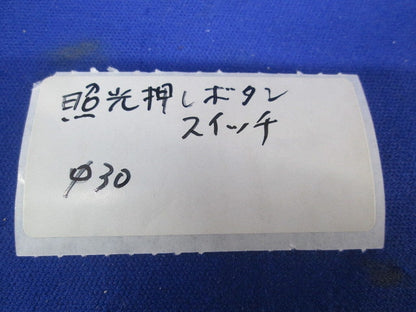 照光押しボタン
スイッチ
φ30